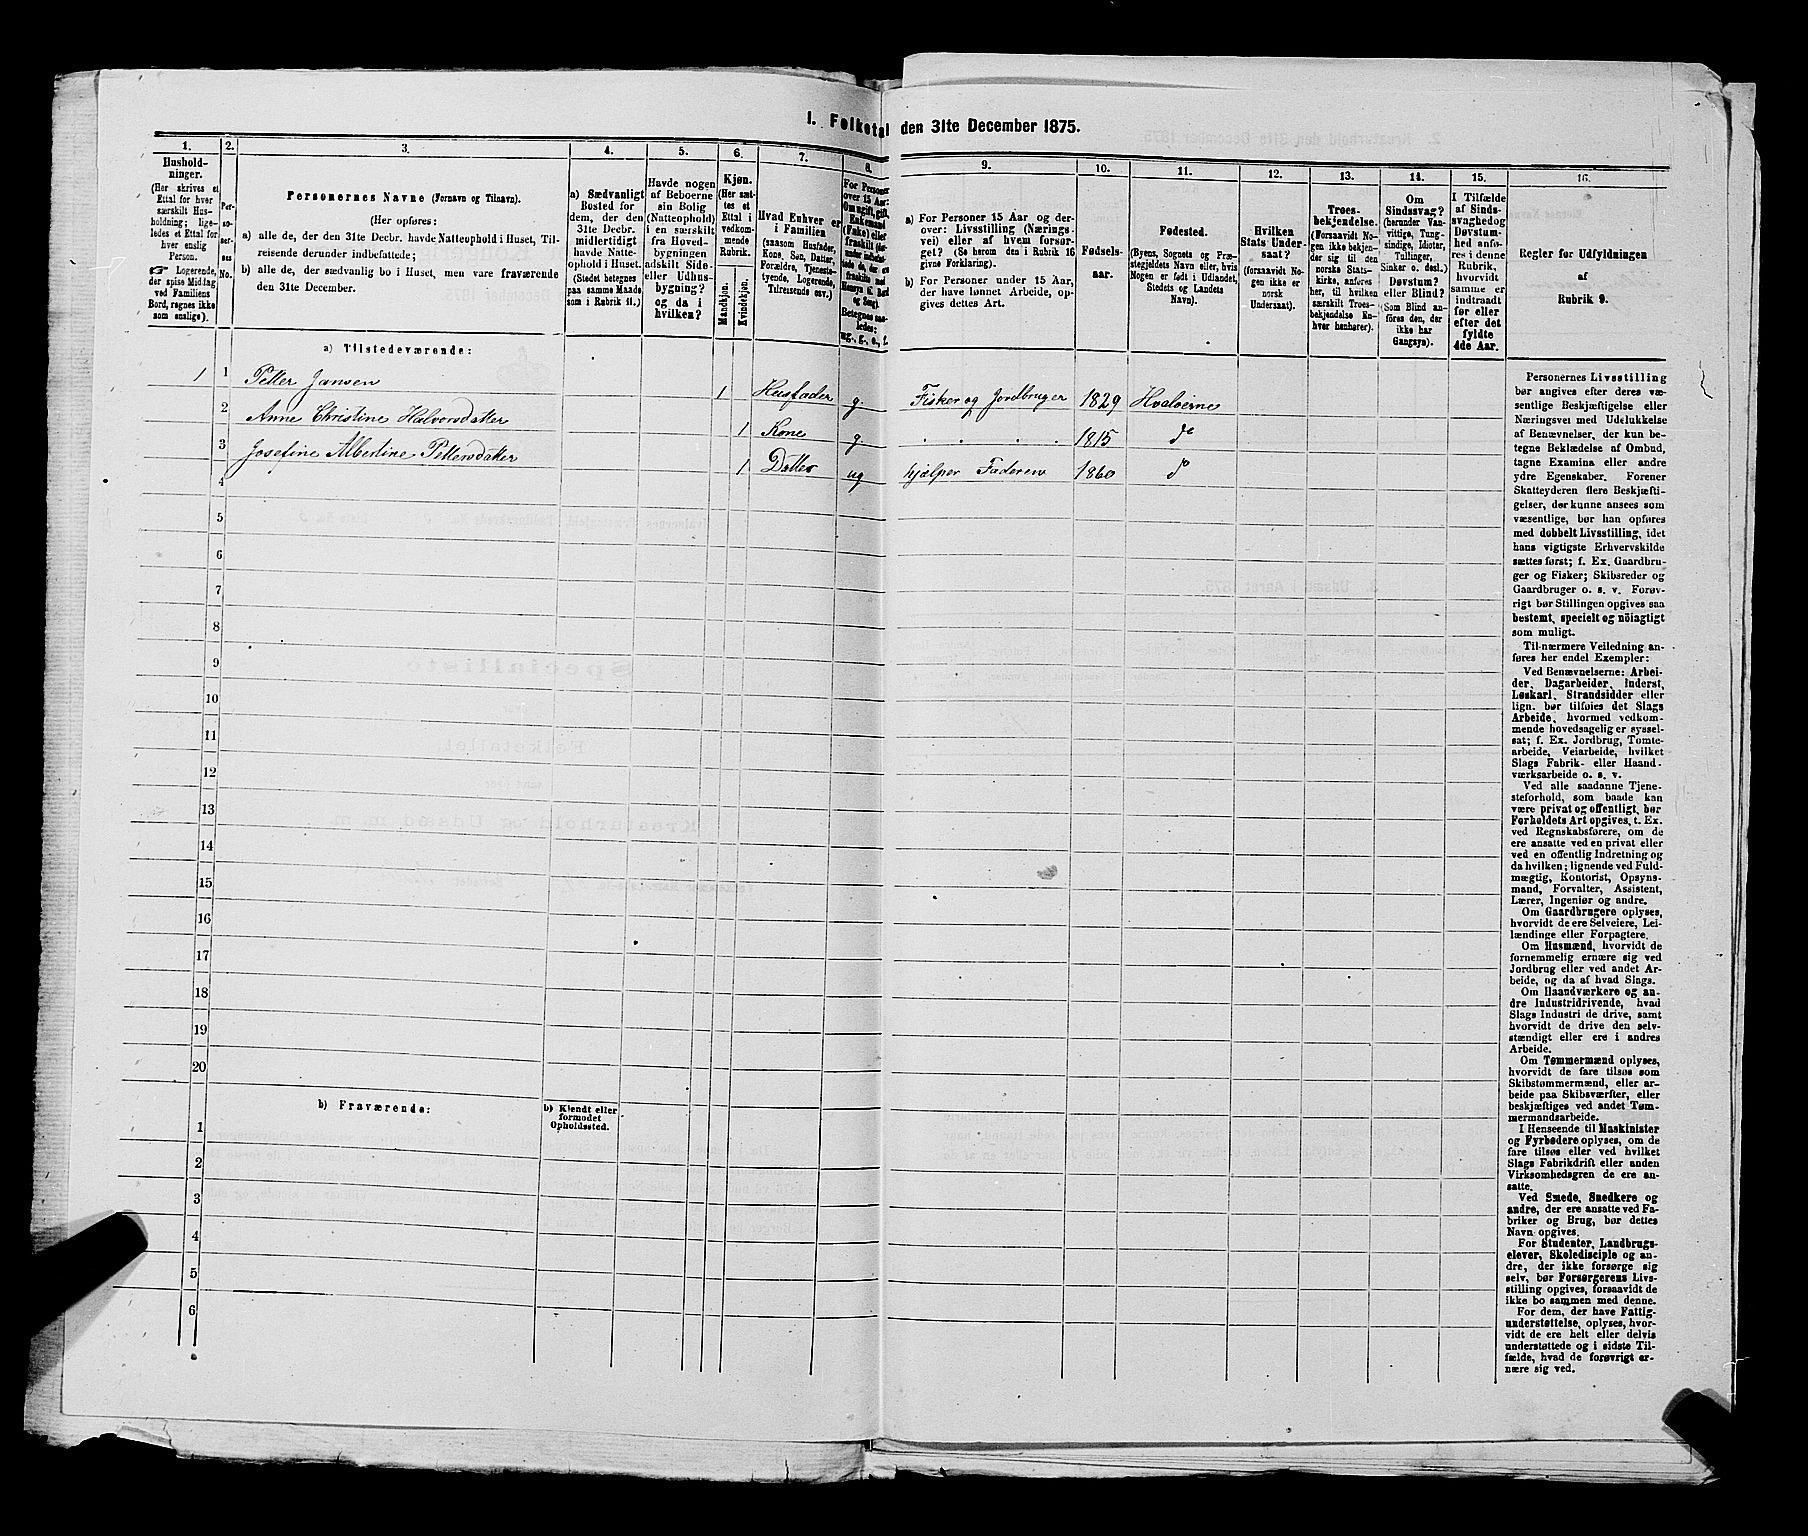 I. Folketal den 31te December 1875.
1. 2. 3. 4. 5. 6. 7. 8. 9. 10. 11. 12. 13. 14. 15. 16.
Hushold-
ninger.
(Her skrives et
Ettal for hver
særskilt Hus-
holdning; lige-
ledes et Ettal for
hver enslig
Person.
☞ Logerende,
der spise Middag
ved Familiens
Bord, regnes ikke
som enslige).
Per-
so-
ner-
nes
No.
Personernes Navne (Fornavn og Tilnavn).
(Her opføres:
a) alle de, der den 31te Decbr. havde Natteophold i Huset, Til-
reisende derunder indbefattede;
b) alle de, der sædvanlig bo i Huset, men vare fraværende
den 31te December.
a) Sædvanligt
Bosted for
dem, der den
31te Decbr.
midlertidigt
havde Natte-
ophold i Huset.
(Stedet betegnes
paa samme Maade,
som i Rubrik 11.)
Havde nogen
af Beboerne
sin Bolig
(Natteophold)
i en særskilt
fra Hoved-
bygningen
adskilt Side-
eller Udhus-
bygning?
og da i
hvilken?
Kjøn.
(Her sæt-
tes et
Ettal i
vedkom-
mende
Rubrik.
Mandkjøn.
Kvindekjøn.
Hvad Enhver er
i Familien
(saasom Husfader,
Kone, Søn, Datter,
Forældre, Tjeneste-
tyende, Logerende,
Tilreisende osv.)
For Personer
over 15 Aar:
a) For Personer 15 Aar og der-
over: Livsstilling (Nærings-
vei) eller af hvem forsør-
get? (Se herom den i Rubrik 16
givne Forklaring).
b) For Personer under 15 Aar,
der have lønnet Arbeide, op-
gives dettes Art.
Fødsels-
aar.
Fødested.
(Byens, Sognets og Præ-
stegjeldets Navn eller, hvis
Nogen er født i Udlandet,
Stedets og Landets
Navn).
Hvilken
Stats Under-
saat?
(forsaavidt No-
gen ikke er
norsk
Undersaat).
Troes-
bekjendelse.
(Forsaavidt No-
gen ikke bekjen-
der sig til den
norske Stats-
kirke, anføres
her, til hvilken
særskilt Troes-
bekjendelse En-
hver henhører).
Om
Sindssvag?
(herunder Van-
vittige, Tung-
sindige, Idioter,
Tullinger,
Sinker o. desl.)
Døvstum?
eller Blind?
Som Blind an-
føres den, der
ikke har
Gangsyn).
I Tilfælde
af Sinds-
svaghed og
Døvstum-
hed anfø-
res i denne
Rubrik,
hvorvidt
samme er
indtraadt
før eller
efter det
fyldte
4de Aar.
Regler for Udfyldningen
af
Rubrik 9.
a) Tilstedeværende:
1 1 Petter Jansen 1 Husfader g Fisker og Jordbruger 1829 Hvaløerne
2 Anne Christine Halvorsdatter 1 Kone g . . . . 1815 do
3 Josefine Albertine Pettersdatter 1 Datter ug hjælper Faderen 1860 do
4
5
6
7
8
9
10
11
12
13
14
15
16
17
18
19
20
b) Fraværende:
b) Kjendt eller
formodet
Opholdssted.
1
2
3
4
5
6
Personernes Livsstilling
bør angives efter deres væ-
sentlige Beskjæftigelse eller
Næringsvei med Udelukkelse
af Benævnelser, der kun be-
tegne Beklædelse af Ombud,
tagne Examina eller andre
ydre Egenskaber. Forener
Skatteyderen flere Beskjæfti-
gelser, der kunne ansees som
væsentlige, bør han opføres
med dobbelt Livsstilling, idet
hans vigtigste Erhvervskilde
sættes først; f. Ex. Gaardbru-
ger og Fisker; Skibsreder og
Gaardbruger o. s. v. Forøv-
rigt bør Stillingen opgives saa
bestemt, specielt og nöiagtigt
som muligt.
Til nærmere Veiledning an-
føres her endel Exempler:
Ved Benævnelserne: Arbei-
der, Dagarbeider, Inderst,
Løskarl, Strandsidder eller
lign. bør tilføies det Slags
Arbeide, hvormed vedkom-
mende hovedsagelig er syssel-
sat; f. Ex. Jordbrug, Tomte-
arbeide, Veiarbeide, hvilket
Slags Fabrik- eller Haand-
værksarbeide o. s. v.
Ved alle saadanne Tjene-
steforhold, som baade kan
være privat og offentligt, bør
Forholdets Art opgives, t. Ex.
ved Regnskabsførere, om de
ere ansatte ved en privat eller
ved en offentlig Indretning og
da hvilken; lignende ved Fuld-
mægtig, Kontorist, Opsyns-
mand, Forvalter, Assistent,
Lærer, Ingeniør og andre.
Om Gaardbrugere oplyses,
hvorvidt de ere Selveiere, Lei-
lændinge eller Forpagtere.
Om Husmænd, hvorvidt de
fornemmelig ernære sig ved
Jordbrug eller ved andet Ar-
beide, og da af hvad Slags.
Om Haandværkere og an-
dre Industridrivende, hvad
Slags Industri de drive, samt
hvorvidt de drive den selv-
stændigt eller ere i andres
Arbeide.
Om Tømmermænd oplyses,
hvorvidt de fare tilsøs som
Skibstømmermænd, eller ar-
beide paa Skibsværfter, eller
beskjæftiges ved andet Tøm-
mermandsarbeide.
I Henseende til Maskinister
og Fyrbødere oplyses, om de
fare tilsøs eller ved hvilket
Slags Fabrikdrift eller anden
Virksomhedsgren de ere an-
satte.
Ved Smede, Snedkere og
andre, der ere ansatte ved Fa-
briker og Brug, bør dettes
Navn opgives.
For Studenter, Landbrugs-
elever, Skoledisciple og an-
dre, der ikke forsørge sig
selv, bør Forsørgerens Livs-
stilling opgives, forsaavidt de
ikke bo sammen med denne.
For dem, der have Fattig-
understøttelse, oplyses, hvor-
vidt de ere helt eller delvis
understøttede og i sidste Til-
fælde, hvad de forøvrigt er-
nære sig ved.